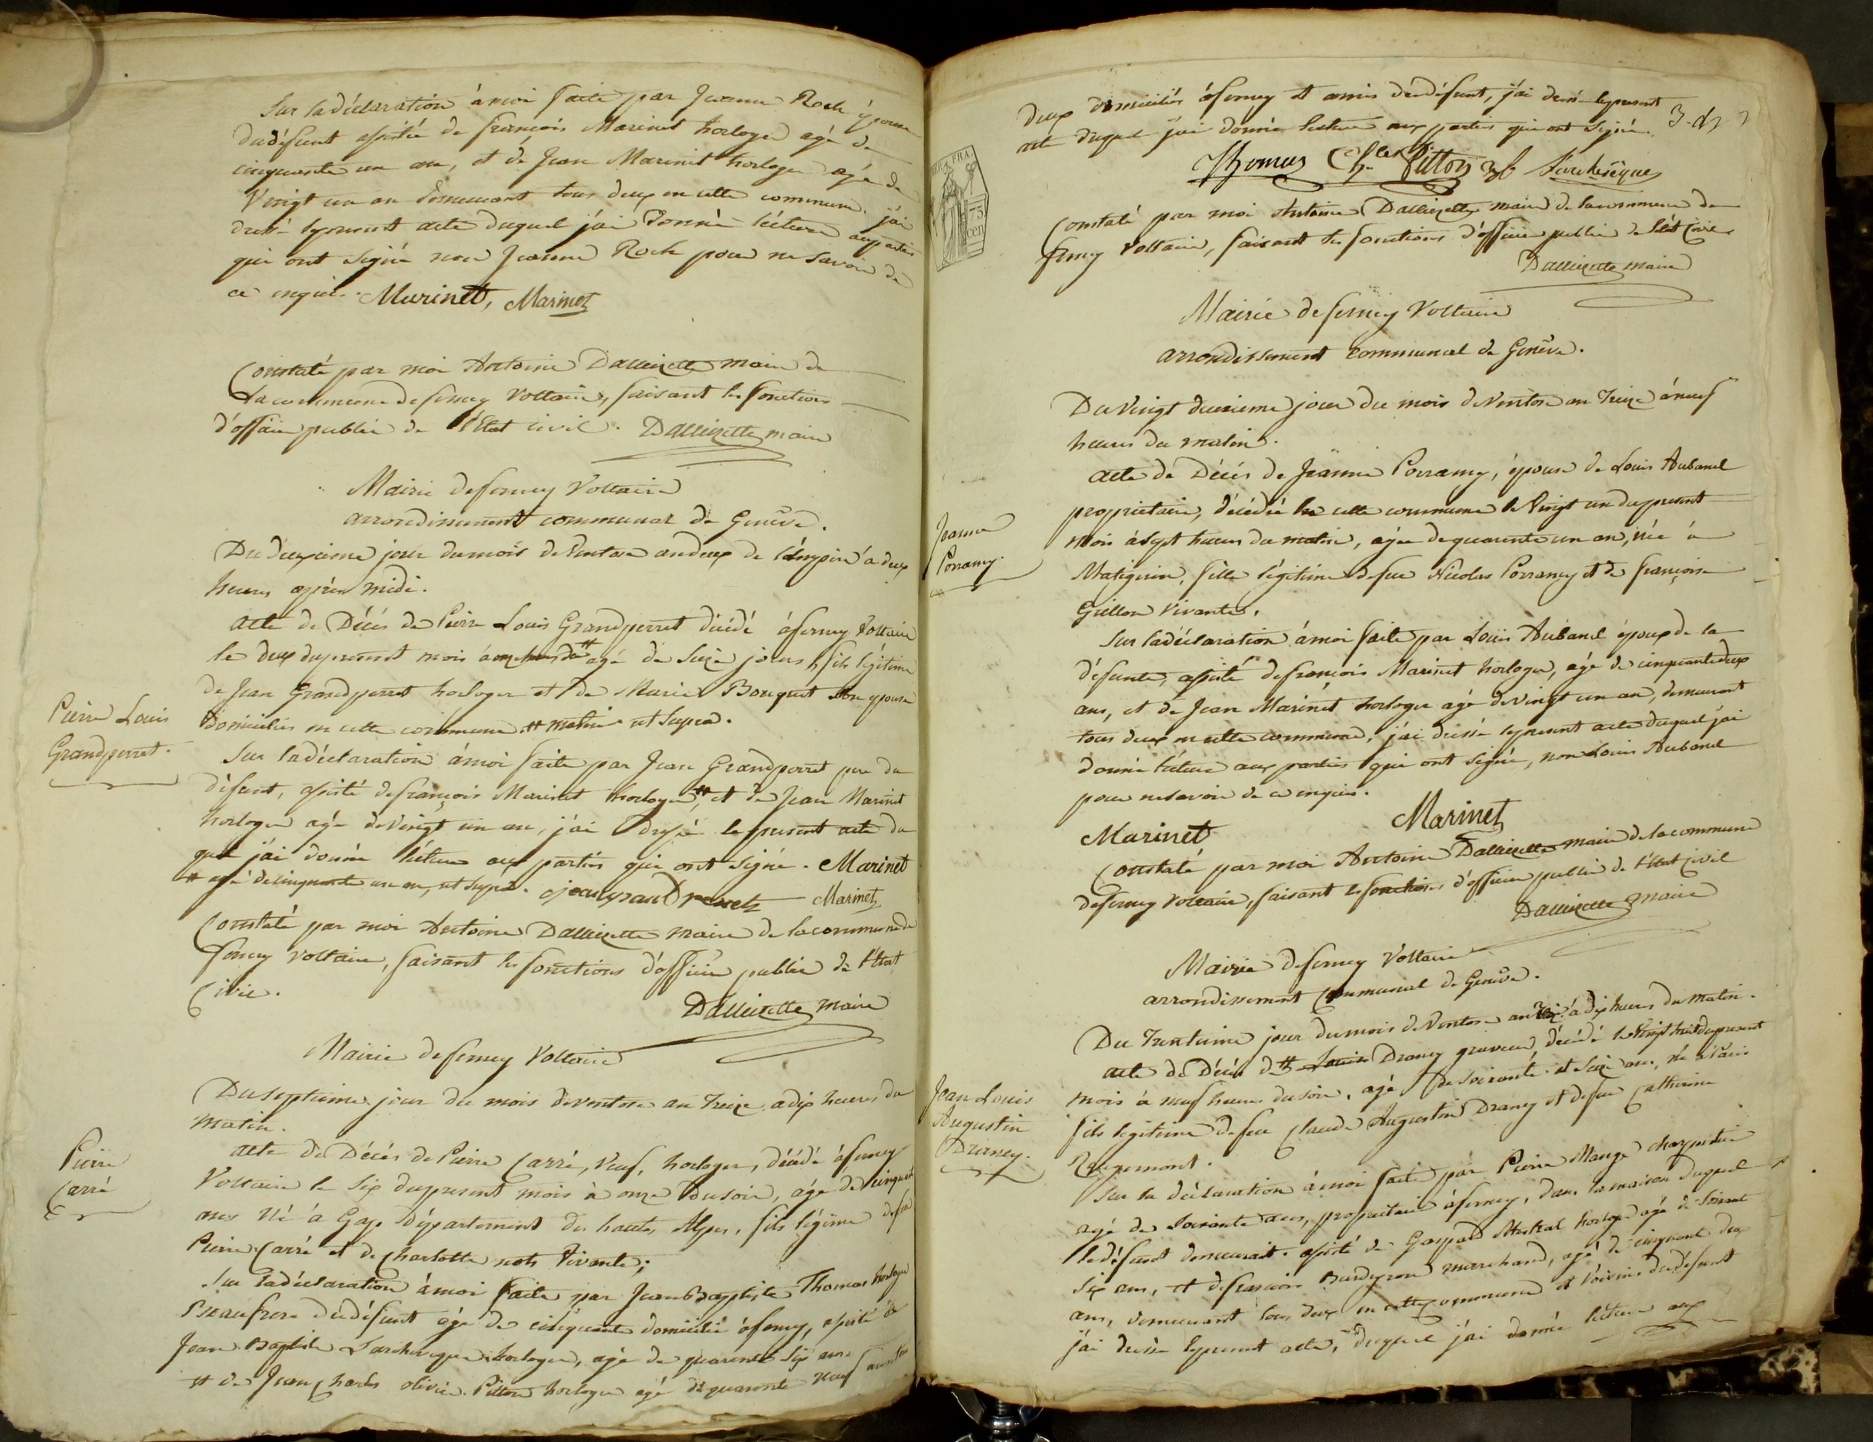 Sur la déclaration à moi faite par Jeanne Roch épouse
du défunt assisté de françois Marinet horloger agé de
cinquante un an, et de Jean Marinet horloger agé de
Vingt un an demeurant tous deux en cette commune. j'ai
dressé le present acte duquel j'ai donné lecture aux parties
qui ont signé non Jeanne Roch pour ne savoir de
ce enquis. Marinet, Marinet
Constaté par moi Antoine Dallizette maire de
La commune de ferney Voltaire, faisant les fonctions
d'officier public de l'Etat civil. Dallizette maire
Mairie de ferney Voltaire
arrondissement communal de Genêve.
Du deuxieme jour du mois de Ventose an de
heures après midi.
acte de Décés de Pierre Louis Grandperret décédé à ferney Voltaire
le deux du present mois à agé de seize jours, fils légitime
de Jean Grandperret horloger et de Marie Bouquet son epouse
Domiciliés en cette commune # matin ut supra.
Pierre Louis
Grandperret.
Sur la déclaration à moi faite par Jean Grandperret pere du
défunt, assisté de françois Marinet horloger # et de Jean Marinet
horloger agé de Vingt un an, j'ai dressé le present acte du
quel j'ai donné lecture aux parties qui ont signé. Marinet
# agé de cinquante un an, ut supra. Marinet
Constaté par moi Antoine Dallizette maire de la commune de
ferney Voltaire, faisant les fonctions d'officier public de l'Etat
Civil.
Dallizette maire
Mairie de ferney Voltaire
Du septieme jour du mois de ventose an Treize a dix heures du
matin.
acte de Décés de Pierre Carré, Veuf, horloger, décédé à ferney
Voltaire le Six du present mois à onze du soir, agé de cinquante
ans Né à Gap département des hautes Alpes, fils légitime de feu
Pierre Carré et de Charlotte vivante;
Pierre
Carré
Sur la déclaration à moi faite par Jean Baptiste Thomas horloger
Beaufrere du défunt agé de cinquante domicilié à ferney, assisté de
Jean Baptiste Larcheveque horloger, agé de quarante six ans
et de Jean Charles olivier Pitton horloger agé de quarante neuf ans
deux domiciliés à ferney et amis du défunt, j'ai dressé le present
acte duquel j'ai donné lecture aux parties qui ont signé.
Thomas Ch Pitton Larcheveque
Constaté par moi Antoine Dallizette maire de la commune de
ferney Voltaire, faisant les fonctions d'officier public de l'état Civil
Dallizette maire
75
cen
Mairie de ferney Voltaire
arrondissement communal de Genêve.
Du Vingt deuxieme jour du mois de Ventose an Treize à neuf
heures du matin.
acte de Décés de Jeanne Porramy, épouse de Louis Aubanel
propriétaire, décédée en cette commune le Vingt un du present
mois à sept heures du matin, agée de quarante un an, née à
Matignin, fille légitime de feu Nicolas Porramy et de françoise
Grillon Vivante.
Jeanne
Porramy.
Sur la déclaration à moi faite par Louis Aubanel époux de la
défunte, assisté de françois Marinet horloger, agé de cinquante deux
ans, et de Jean Marinet horloger agé de Vingt un an, demeurant
tous deux en cette commune, j'ai dressé le present acte duquel j'ai
donné lecture aux parties qui ont signé, non Louis Aubanel
pour ne savoir de ce enquis.
Marinet Marinet
Constaté par moi Antoine Dallizette maire de la commune
de ferney Voltaire, faisant les fonctions d'officier public de l'état civil
Dallizette maire
Mairie de ferney Voltaire
arrondissement Communal de Genêve.
Du Trentieme jour du mois de Ventose an à dix heures du matin.
acte de Décés de # Drancy graveur, décédé le Vingt huit du present
mois à neuf heures du soir, agé de soixante et seize ans, né à Paris
fils légitime de feu Claude Augustin Drancy et de feue Catherine
Rougemont.
Jean Louis
Augustin
Drancy.
Sur la déclaration à moi faite par Pierre Mauge charpentier
agé de Soixante ans, propriétaire à ferney, dans la maison duquel
le défunt demeurait. assisté de Gaspard Mestral horloger agé de soixante
six ans, et de françois marchand, agé de cinquante deux
ans, demeurant tous deux en cette commune et Voisins du défunt
j'ai dressé le present acte, duquel j'ai donné lecture aux